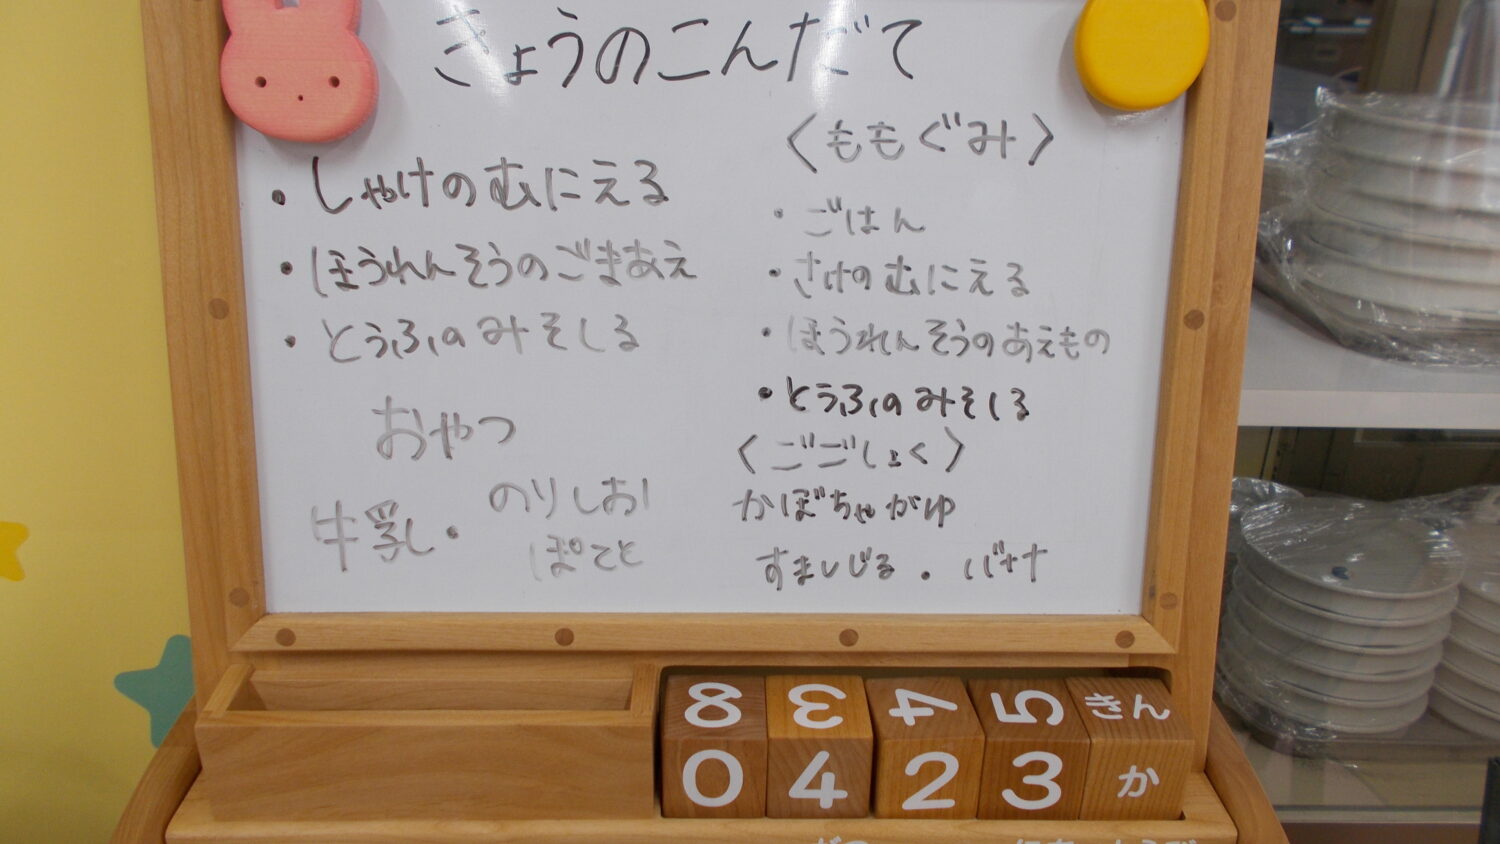 きょうのこんだて
・しゃけのむにえる
・ほうれんそうのごまあえ
・とうふのみそしる
おやつ
牛乳・のりしお
ぽてと
〈ももぐみ〉
・ごはん
・さけのむにえる
・ほうれんそうのあえもの
・とうふのみそしる
〈ごごしょく〉
かぼちゃがゆ
すましじる．バナナ
8 3 4 5 きん
0 4 2 3 か